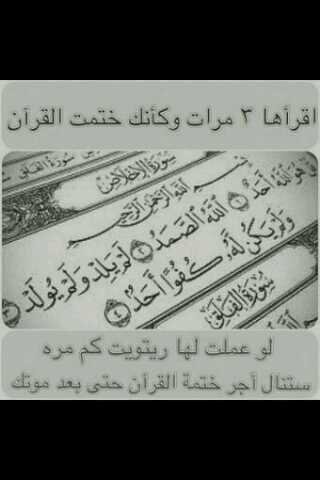 اقرأها ٣ مرات وكأنك ختمت القرآن
سورة الفلق
سورة الإخلاص
بسم الله الرحمن الرحيم
قل هو الله أحد ١ الله الصمد ٢ لم يلد ولم يولد ٣
ولم يكن له كفوا أحد ٤
سورة الفلق
لو عملت لها ريتويت كم مره
ستنال أجر ختمة القرآن حتى بعد موتك